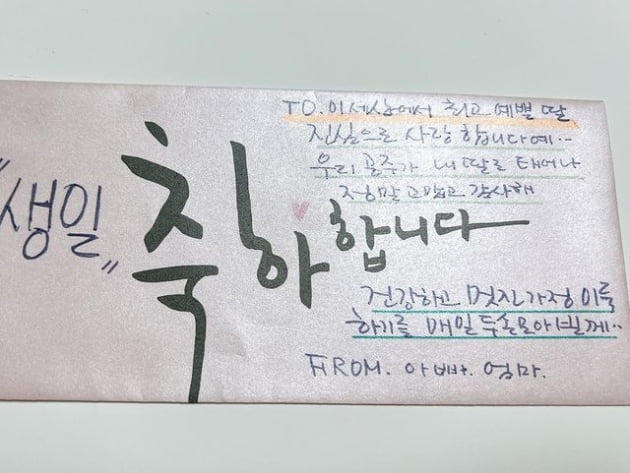 TO. 이세상에서 최고 예쁠 딸
진심으로 사랑합니다예..
우리 공주가 내 딸로 태어나
정말 고맙고 감사해
"생일"
축하합니다
건강하고 멋진 가정 이룩
하기를 매일 두손모아 빌게..
FROM. 아빠. 엄마.